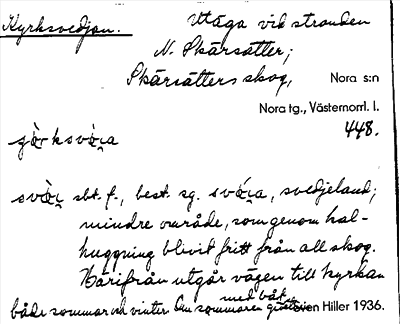 Kyrksvedjan. Utäga vid stranden
N. Skärsätter;
Skärsätters skog, Nora s:n
Nora tg., Västernorrl. l.
448.
sbt. f., best. sg. svedjeland;
mindre område, som genom kal-
huggning blivit fritt från all skog.
Härifrån utgår vägen till kyrkan
både sommar och vinter. Om sommaren med båt Hiller 1936.